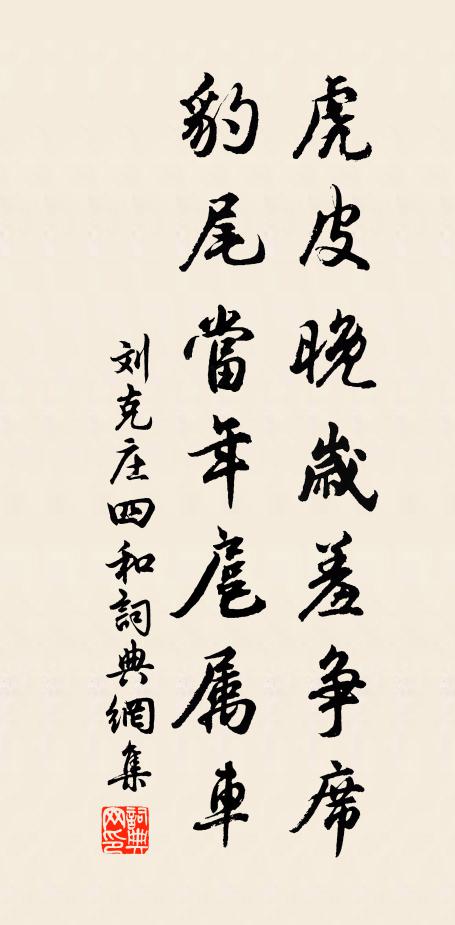 虎皮晚歲羞争席
豹尾當年扈属車
刘克庄四和詞典網集
詞典网印